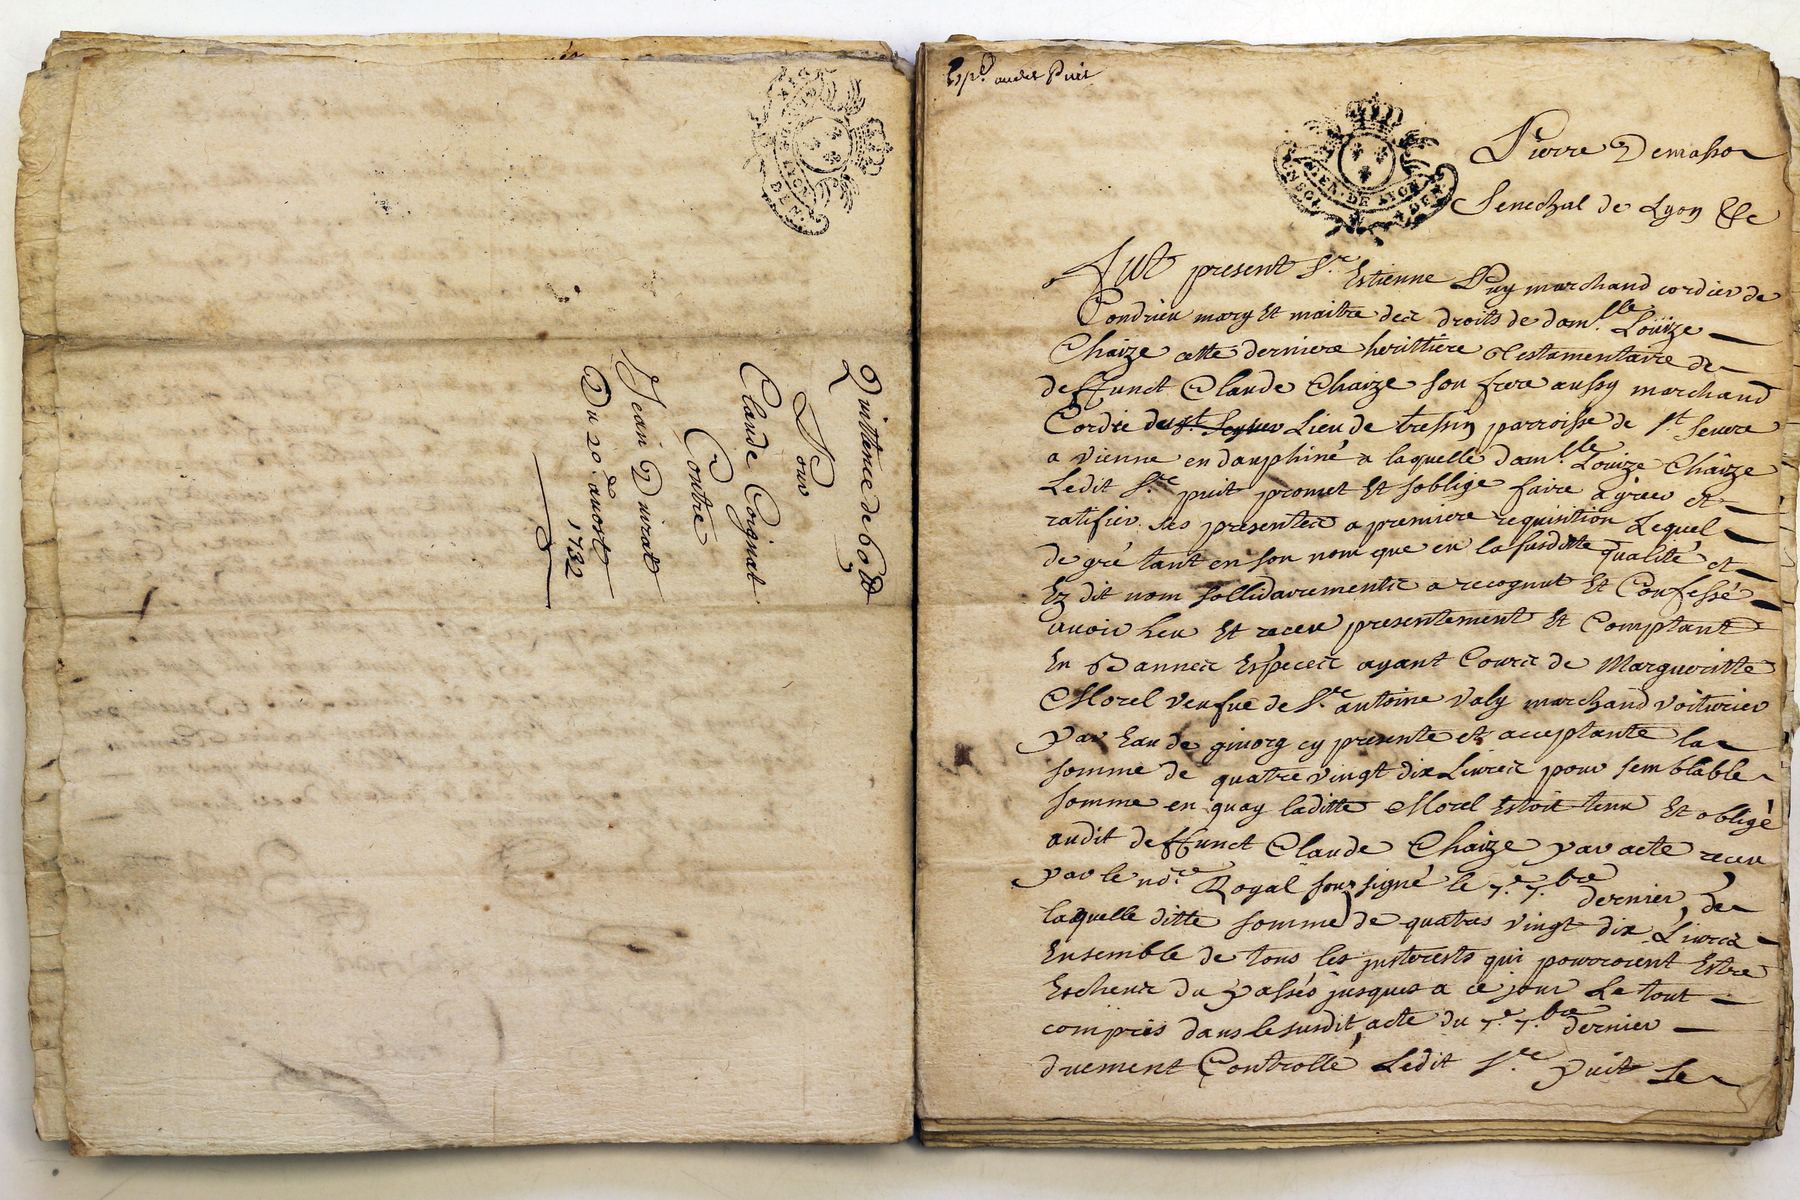 Quittence de 60 lt
Pour
Claude Coignat
Contre
Jean Duivat
Du 20. d'auost
1732
Exp.é audit Puit
GEN. DE LYON
Pierre Demasso
Senechal de Lyon &c
Fut present Sr. Estienne Puy marchand cordier de
Condrieu mary et maitre des droits de dam.lle Loüize
Chaize cette derniere herittiere testamentaire de
deffunct Claude Chaize son frere aussy marchand
Cordie Lieu de tressin parroisse de St Severe
a vienne en dauphiné a laquelle dam.lle Louize Chaize
Ledit Sr. puit promet et soblige faire agreer et
ratifier ses presentes a premiere requisition Lequel
de gré tant en son nom que en la susditte qualité et
Ez dit nom sollidairements a recognut et Confessé
avoir heu et receu presentement et Comptant
En Bannes Especes ayant Cours de Margueritte
Morel veufue de Sr. antoine Valy marchand voiturier
par Eau de givorg cy presente et acceptante la
somme de quatre vingt dix Livres pour semblable
somme en quoy laditte Morel Estoit tenu et obligé
audit deffunct Claude Chaize par acte receu
par le no.re Royal soussigné le 7.e 7.bre dernier, de
laquelle ditte somme de quatres vingt dix Livres
Ensemble de tous les justerests qui pourroient Estre
Escheus du passés jusques a ce jour Le tout
compris dans le susdit acte du 7.e 7.bre dernier
druement Controllé Ledit Sr. puit se